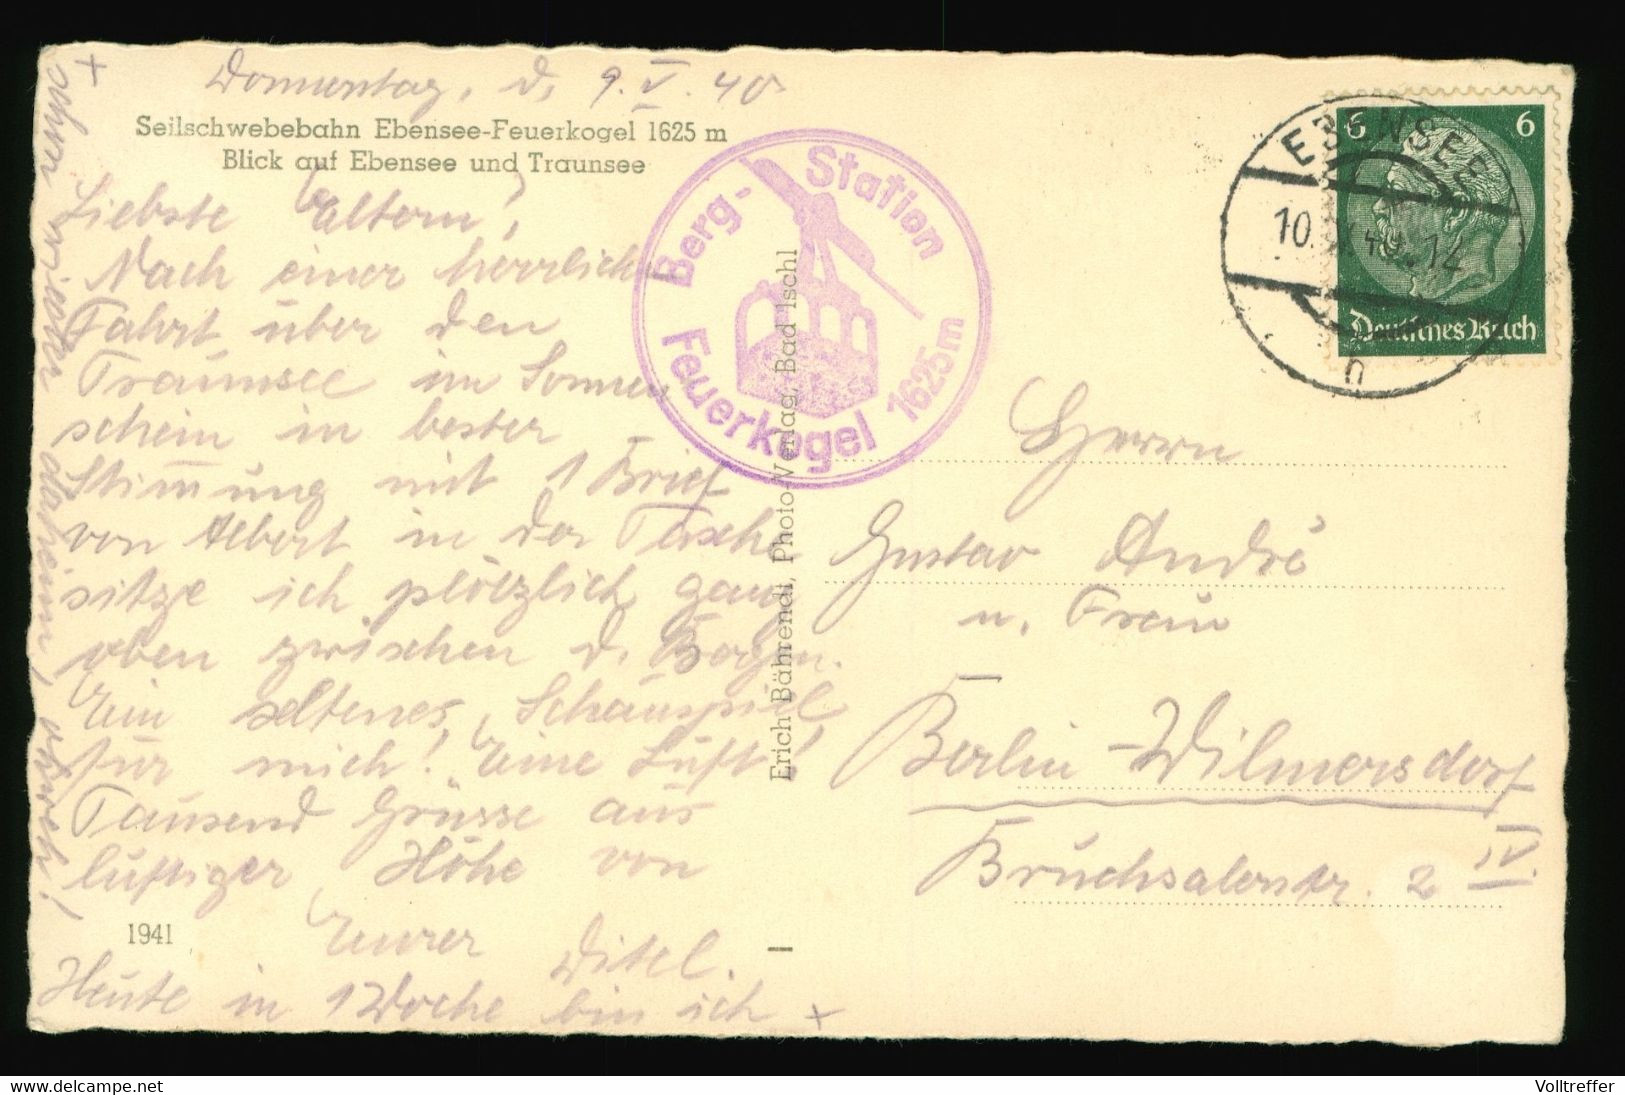 Donnerstag, d. 9. V. 40
Seilschwebebahn Ebensee-Feuerkogel 1625 m
Blick auf Ebensee und Traunsee
Liebste Eltern!
Nach einer herrlich
Fahrt über den
Traunsee im Sonnen
schein in bester
Stim̅ung mit 1 Brief
von Albert in der Tasche
sitze ich plötzlich ganz
oben zwischen d. Bergen.
Ein seltenes Schauspiel
für mich! Eine Luft!
Tausend Grüsse aus
luftiger Höhe von
Eurer Ditel.
1941
Heute in 1 Woche bin ich +
+ schon wieder daheim, obwohl!
Berg-Station
Feuerkogel 1625m
Erich Bährendt, Photo-Verlag, Bad Ischl
EBENSEE
10. 40. 12
n
6 6
Deutsches Reich
Herrn
Gustav André
u. Frau
Berlin-Wilmersdorf
Bruchsalerstr. 2 IV.
Volltreffer
www.delcampe.net